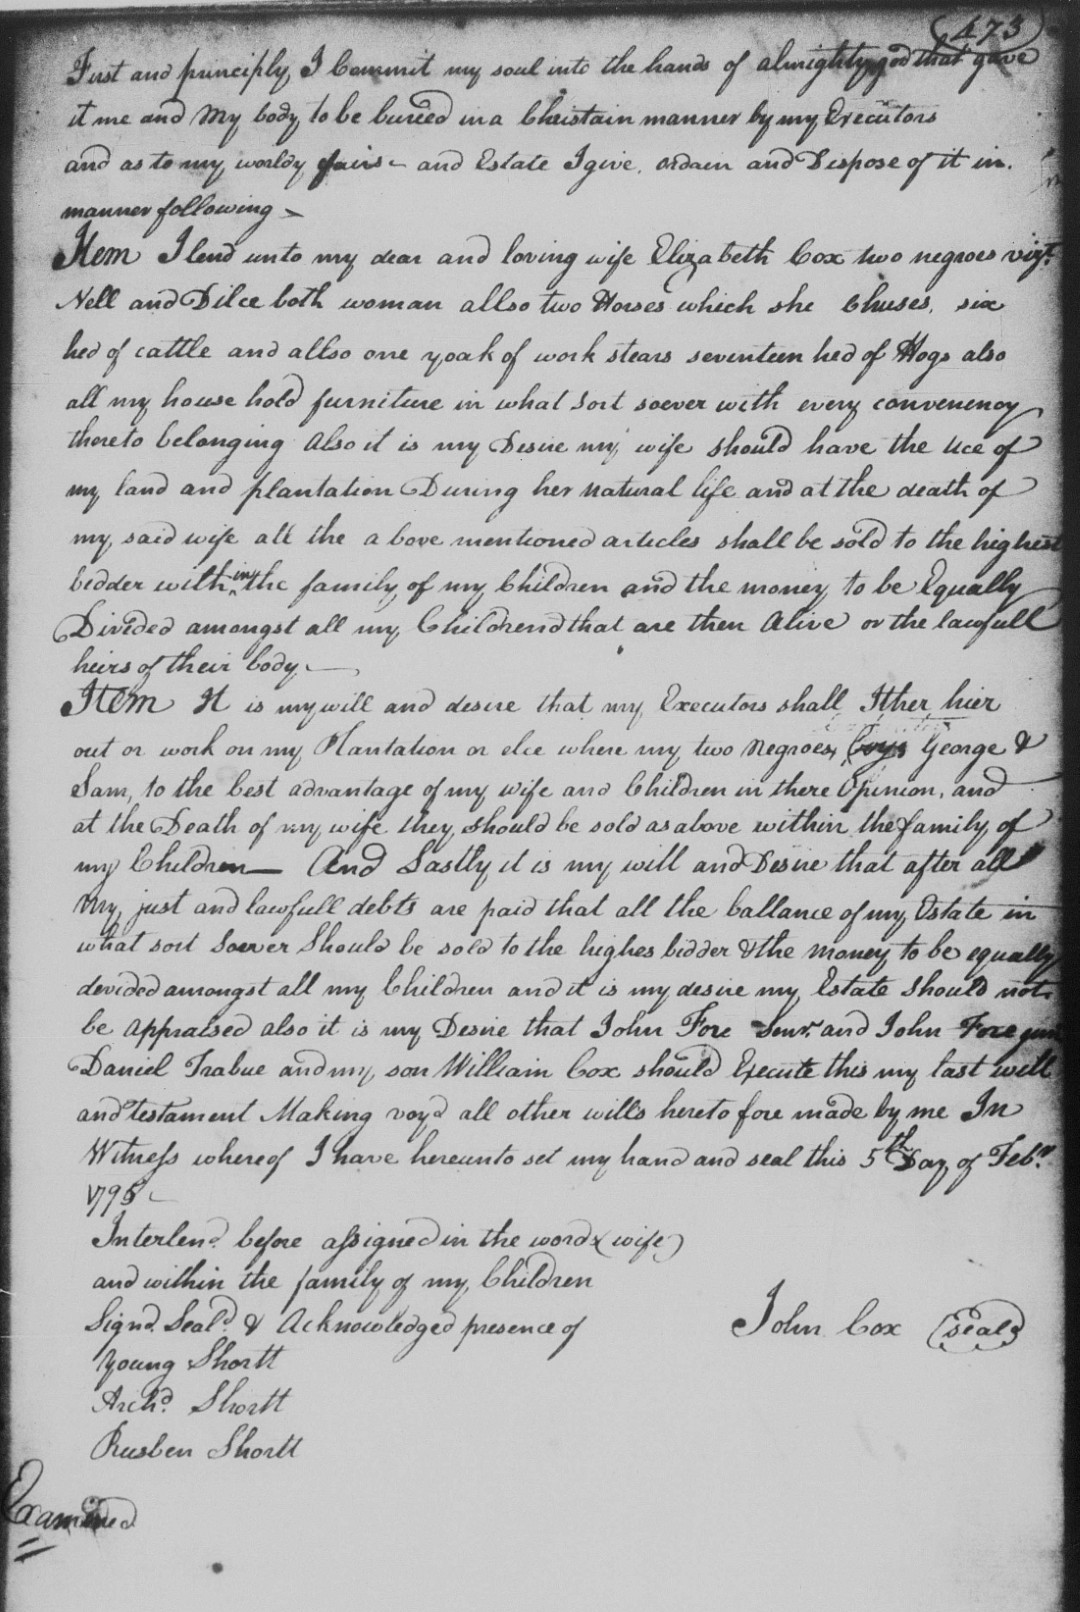 473
First and principly I Commit my soul into the hands of almighty god that gave
it me and My body to be buried in a Christain manner by my Executors
and as to my worldy fairs and Estate I give, ordain and Dispose of it in
manner following
Item I lend unto my dear and loving wife Elizabeth Cox two negroes vizt.
Nell and Dilce both woman allso two Horses which she Chuses, six
hed of cattle and allso one yoak of work stears seventeen hed of Hogs also
all my house hold furniture in what sort soever with every convenency
thereto belonging also it is my Desire my wife should have the uce of
my land and plantation During her natural life and at the death of
my said wife all the above mentioned articles shall be sold to the highest
bidder with in the family of my Children and the money to be Equally
Divided amongst all my Children that are then Alive or the lawfull
heirs of their body
Item It is my will and desire that my Executors shall Ither hier
out or work on my Plantation or elce where my two negroes boys George &
Sam, to the best advantage of my wife and Children in there Opinion, and
at the Death of my wife they should be sold as above within the family of
my Children And Lastly it is my will and Desire that after all
My just and lawfull debts are paid that all the ballance of my Estate in
what sort soever Should be sold to the highes bidder & the money to be equally
devided amongst all my Children and it is my desire my Estate should not
be appraised also it is my Desire that John Fore Senr. and John Fore jun
Daniel Trabue and my son William Cox should Execute this my last will
and testament Making voyd all other wills hereto fore made by me In
Witness whereof I have hereunto set my hand and seal this 5th Day of Feby.
1795
Interlend. before assigned in the words (wife)
and within the family of my Children
Signd. Seald. & Acknowledged presence of
John Cox (seal)
Young Shortt
Archd. Shortt
Reuben Shortt
Examined